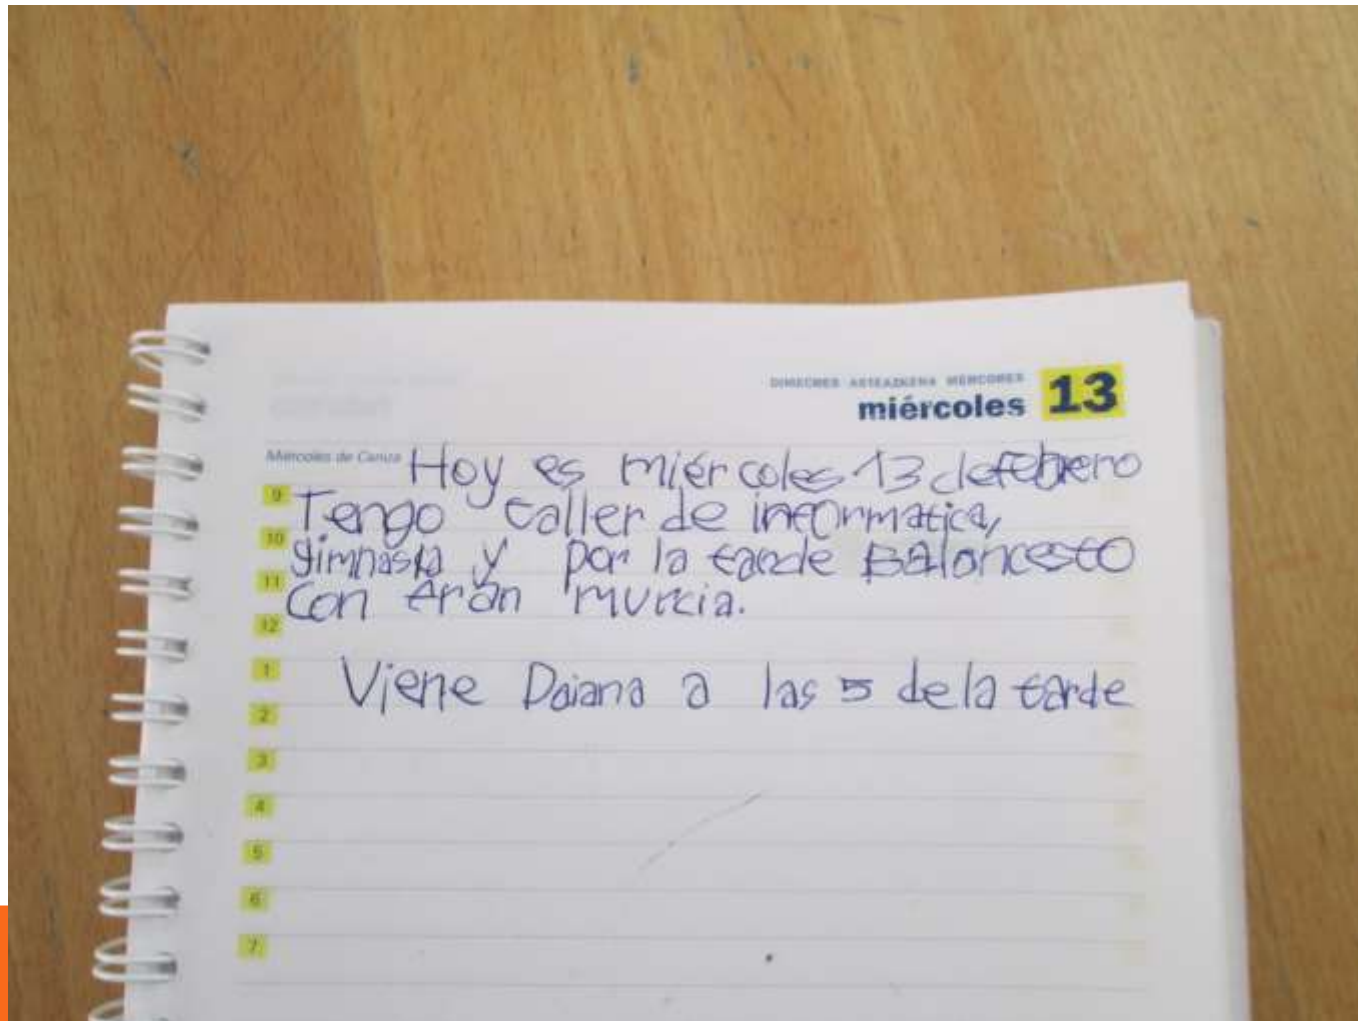 DIMECRES ASTEAZKENA MÉRCORES
miércoles 13
Miércoles de Ceniza
Hoy es miércoles 13 de febrero
9 Tengo taller de informatica,
10 gimnasia y por la tarde Baloncesto
11 con Fran murcia.
12
1 Viene Daiana a las 5 de la tarde
2
3
4
5
6
7